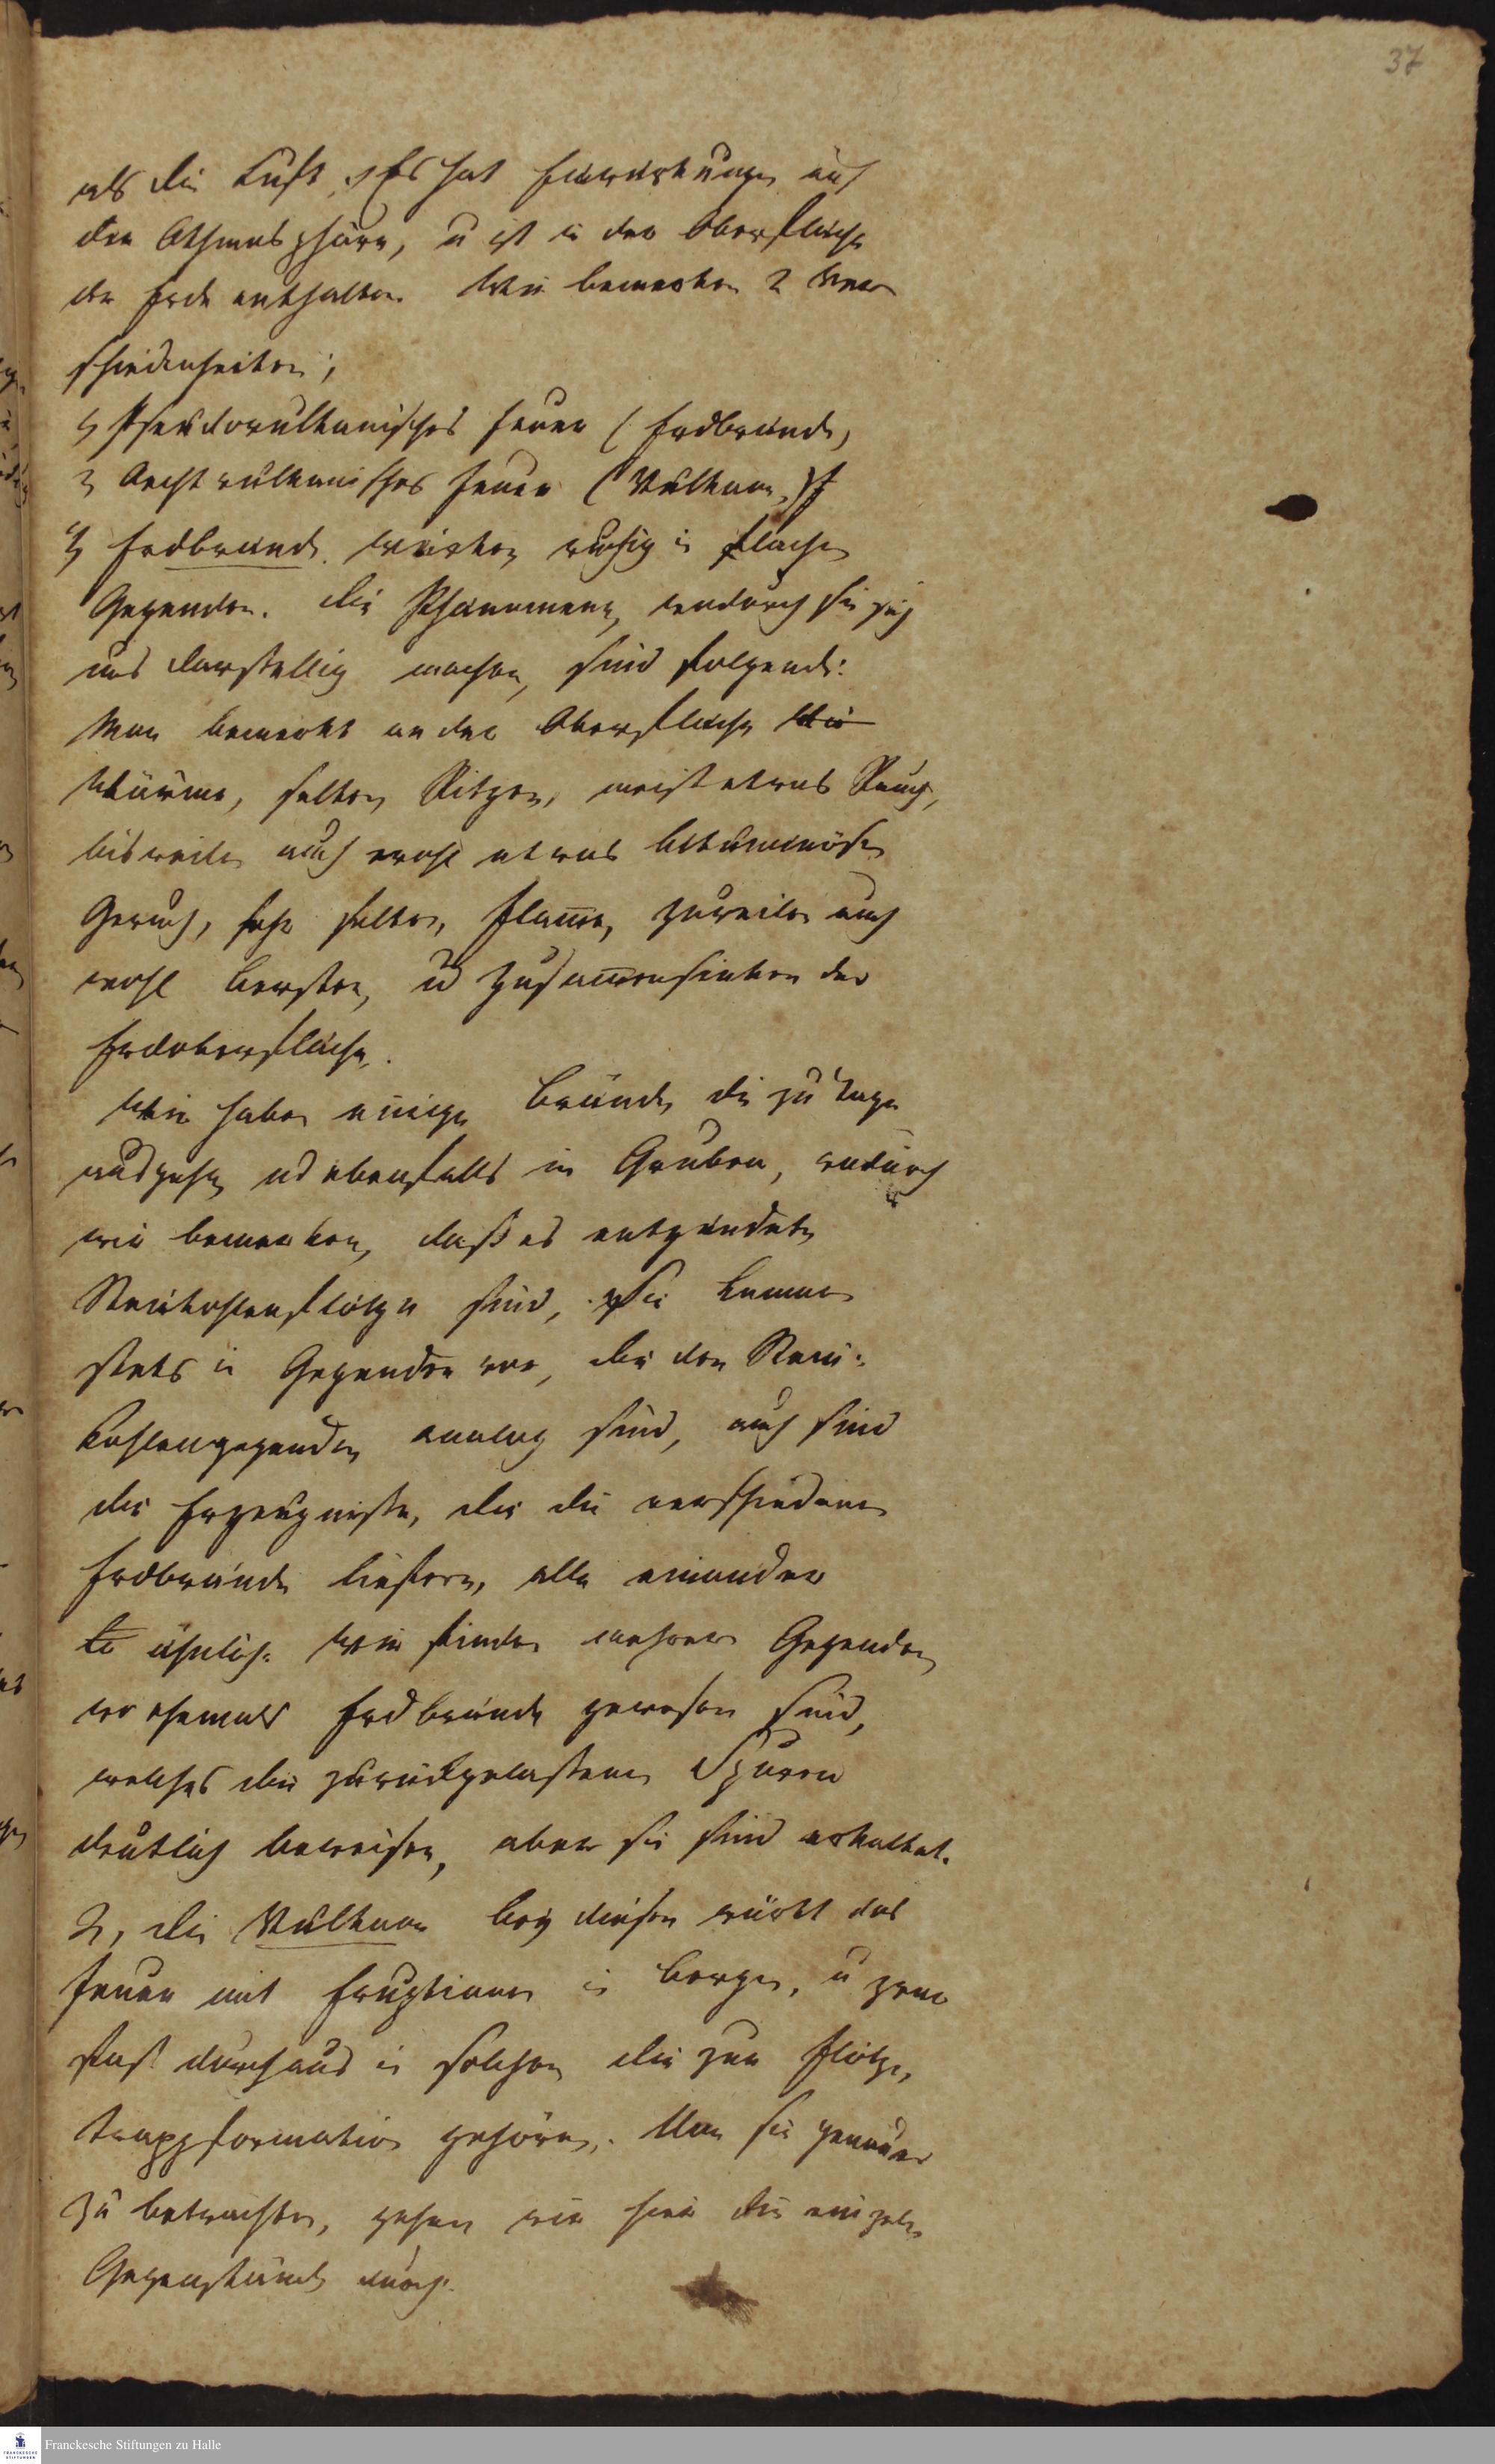 37
als die Luft. Es hat Einwirkungen auf
die Athmosphäre, u ist in der Oberfläche
der Erde enthalten. Wir bemerken 2 Ver
schiedenheiten;
1, Pseudovulkanisches Feuer (Erdbrände,
2, Aechtvulkanisches Feuer (Vulkane,)
1, Erdbrände. wirken ruhig in flachen
Gegenden. Die Phänomene, wodurch sie sich
uns darstellig machen, sind folgende:
Man bemerkt an der Oberfläche die
Wärme, selten Ritzen, meist etwas Rauch,
bisweilen auch wohl etwas bituminösen
Geruch, sehr selten, Flame, zuweilen auch
wohl bersten, ud Zusamensinken der
Erdoberfläche.
Wir haben einige Brände, die zu Tage
ausgehen ud ebenfalls in Gruben, wodurch
wir bemerken, daß es entzündete
Steinkohlenflötze sind, Sie kommen
stets in Gegenden vor, die den Stein-
kohlengegenden analog sind, auch sind
die Erzeugnisse, die die verschiedenen
Erdbrände liefern, alle einander
ähnlich. Wir finden mehrere Gegenden
wo ehemals Erdbrände gewesen sind,
welches die zurückgelassenen Spuren
deutlich beweisen, aber sie sind erkaltet.
2, Die Vulkane bey diesen wirkt das
Feuer mit Eruptionen in Bergen, u zwar
fast durchaus in solchen die zur Flötz,
trappformation gehören. Um sie genauer
zu betrachten, gehen wir hier die einzeln
Gegenstände durch.
Franckesche Stiftungen zu Halle